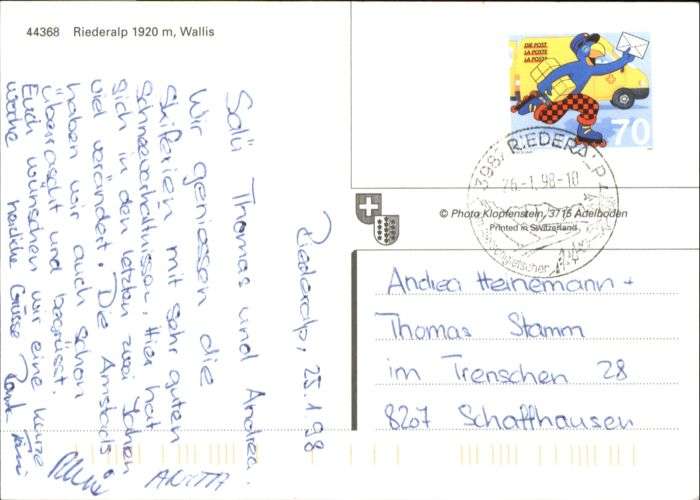 44368 Riederalp 1920 m, Wallis
DIE POST
LA POSTE
LA POSTA
70
3987 RIEDERALP
26.-1.98-10
© Photo Klopfenstein, 3715 Adelboden
Printed in Switzerland
Riederalp, 25.1.98
Salü Thomas und Andrea.
Wir geniessen die
Skiferien mit sehr guten
Schneeverhältnissen. Hier hat
sich in den letzten zwei Jahren
viel verändert. Die Arnstads
haben wir auch schon
überrascht und begrüsst.
Euch wünschen wir eine kurze
Woche herzliche Grüsse
Andrea Heinemann +
Thomas Stamm
im Trenschen 28
8207 Schaffhausen